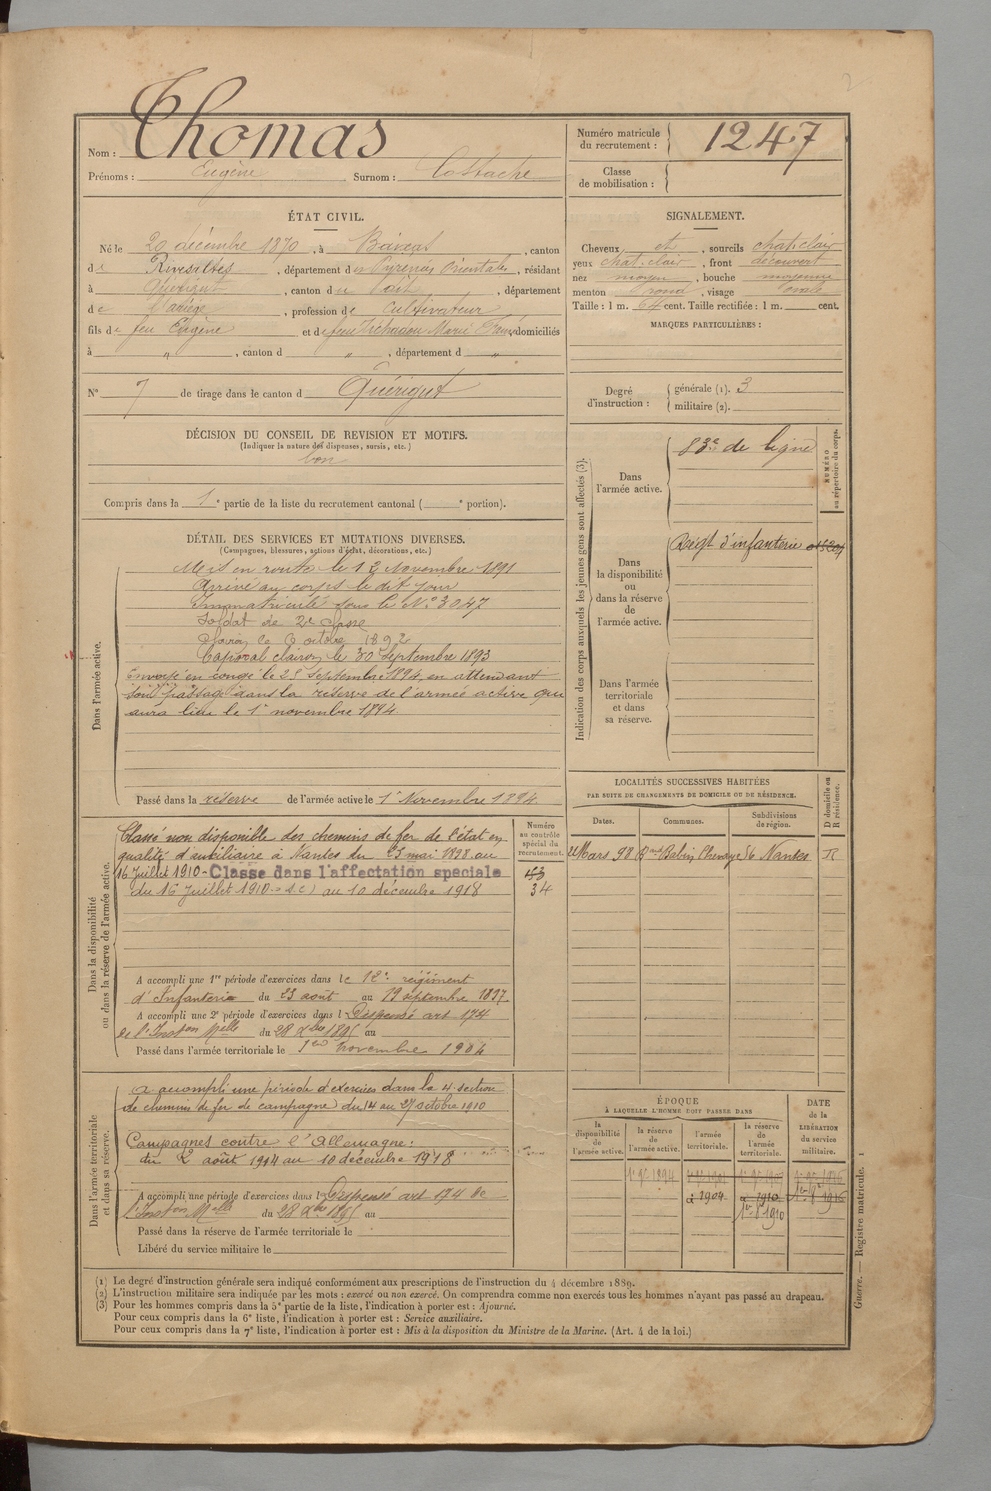 Nom : Thomas
Prénoms : Eugène Surnom : Costache
Numéro matricule
du recrutement : 1247
Classe
de mobilisation :
ÉTAT CIVIL.
Né le 20 décembre 1870, à Baixas, canton
de Rivesaltes, département des Pyrénées Orientales, résidant
à Quérigut, canton du dit, département
de l'Ariège, profession de cultivateur
fils de feu Eugène et de feu Marie domiciliés
à " , canton d " , département d "
N° 7 de tirage dans le canton d Quérigut
DÉCISION DU CONSEIL DE REVISION ET MOTIFS.
(Indiquer la nature des dispenses, sursis, etc.)
bon
Compris dans la 1e partie de la liste du recrutement cantonal ( e portion).
SIGNALEMENT.
Cheveux et, sourcils chat. clair
yeux chat. clair, front découvert
nez moyen, bouche moyenne
menton rond, visage ovale
Taille : 1 m. 64 cent. Taille rectifiée : 1 m. cent.
MARQUES PARTICULIÈRES :
Degré
d'instruction :
générale (1). 3
militaire (2).
DÉTAIL DES SERVICES ET MUTATIONS DIVERSES.
(Campagnes, blessures, actions d'éclat, décorations, etc.)
Dans l'armée active.
Mis en route le 12 Novembre 1891
Arrivé au corps le dit jour
Immatriculé sous le N° 3047
Soldat de 2e classe
Clairon le 6 octobre 1892
Caporal clairon le 30 septembre 1893
Envoyé en congé le 25 septembre 1894, en attendant
son passage dans la réserve de l'armée active qui
aura lieu le 1er novembre 1894
Passé dans la réserve de l'armée active le 1er Novembre 1894.
Indication des corps auxquels les jeunes gens sont affectés (3).
Dans
l'armée active.
83e de ligne
NUMÉRO
au répertoire du corps.
Dans
la disponibilité
ou
dans la réserve
de
l'armée active.
Régt d'infanterie
Dans l'armée
territoriale
et dans
sa réserve.
Dans la disponibilité
ou dans la réserve de l'armée active.
Classé non disponible des chemins de fer de l'état en
qualité d'auxiliaire à Nantes du 23 mai 1898 au
16 Juillet 1910 - Classé dans l'affectation speciale
du 16 Juillet 1910 au 10 décembre 1918
Numéro
au contrôle
spécial du
recrutement.
34
A accompli une 1re période d'exercices dans le 12e régiment
d'Infanterie du 23 août au 19 septembre 1897.
A accompli une 2e période d'exercices dans l Dispensé art 174
de l'Inston Melle du 28 Xbre 1895 au
Passé dans l'armée territoriale le 1er Novembre 1904
LOCALITÉS SUCCESSIVES HABITÉES
PAR SUITE DE CHANGEMENTS DE DOMICILE OU DE RÉSIDENCE.
Dates. Communes. Subdivisions
de région.
D domicile ou
R résidence.
Mars 98 Babin Chevaye 86 Nantes R
Dans l'armée territoriale
et dans sa réserve.
a accompli une période d'exercices dans la 4e section
de chemins de fer de campagne du 14 au 27 octobre 1910
Campagnes contre l'Allemagne :
du 2 août 1914 au 10 décembre 1918
A accompli une période d'exercices dans l Dispensé art 174 de
l'Inston Melle du 28 Xbre 1895 au
Passé dans la réserve de l'armée territoriale le
Libéré du service militaire le
ÉPOQUE
À LAQUELLE L'HOMME DOIT PASSER DANS
la
disponibilité
de
l'armée active.
la réserve
de
l'armée active.
l'armée
territoriale.
la réserve
de
l'armée
territoriale.
DATE
de la
LIBÉRATION
du service
militaire.
1er 9bre 1894
1904
1910
1910
1916
Guerre. — Registre matricule. 1
(1) Le degré d'instruction générale sera indiqué conformément aux prescriptions de l'instruction du 4 décembre 1889.
(2) L'instruction militaire sera indiquée par les mots : exercé ou non exercé. On comprendra comme non exercés tous les hommes n'ayant pas passé au drapeau.
(3) Pour les hommes compris dans la 5e partie de la liste, l'indication à porter est : Ajourné.
Pour ceux compris dans la 6e liste, l'indication à porter est : Service auxiliaire.
Pour ceux compris dans la 7e liste, l'indication à porter est : Mis à la disposition du Ministre de la Marine. (Art. 4 de la loi.)